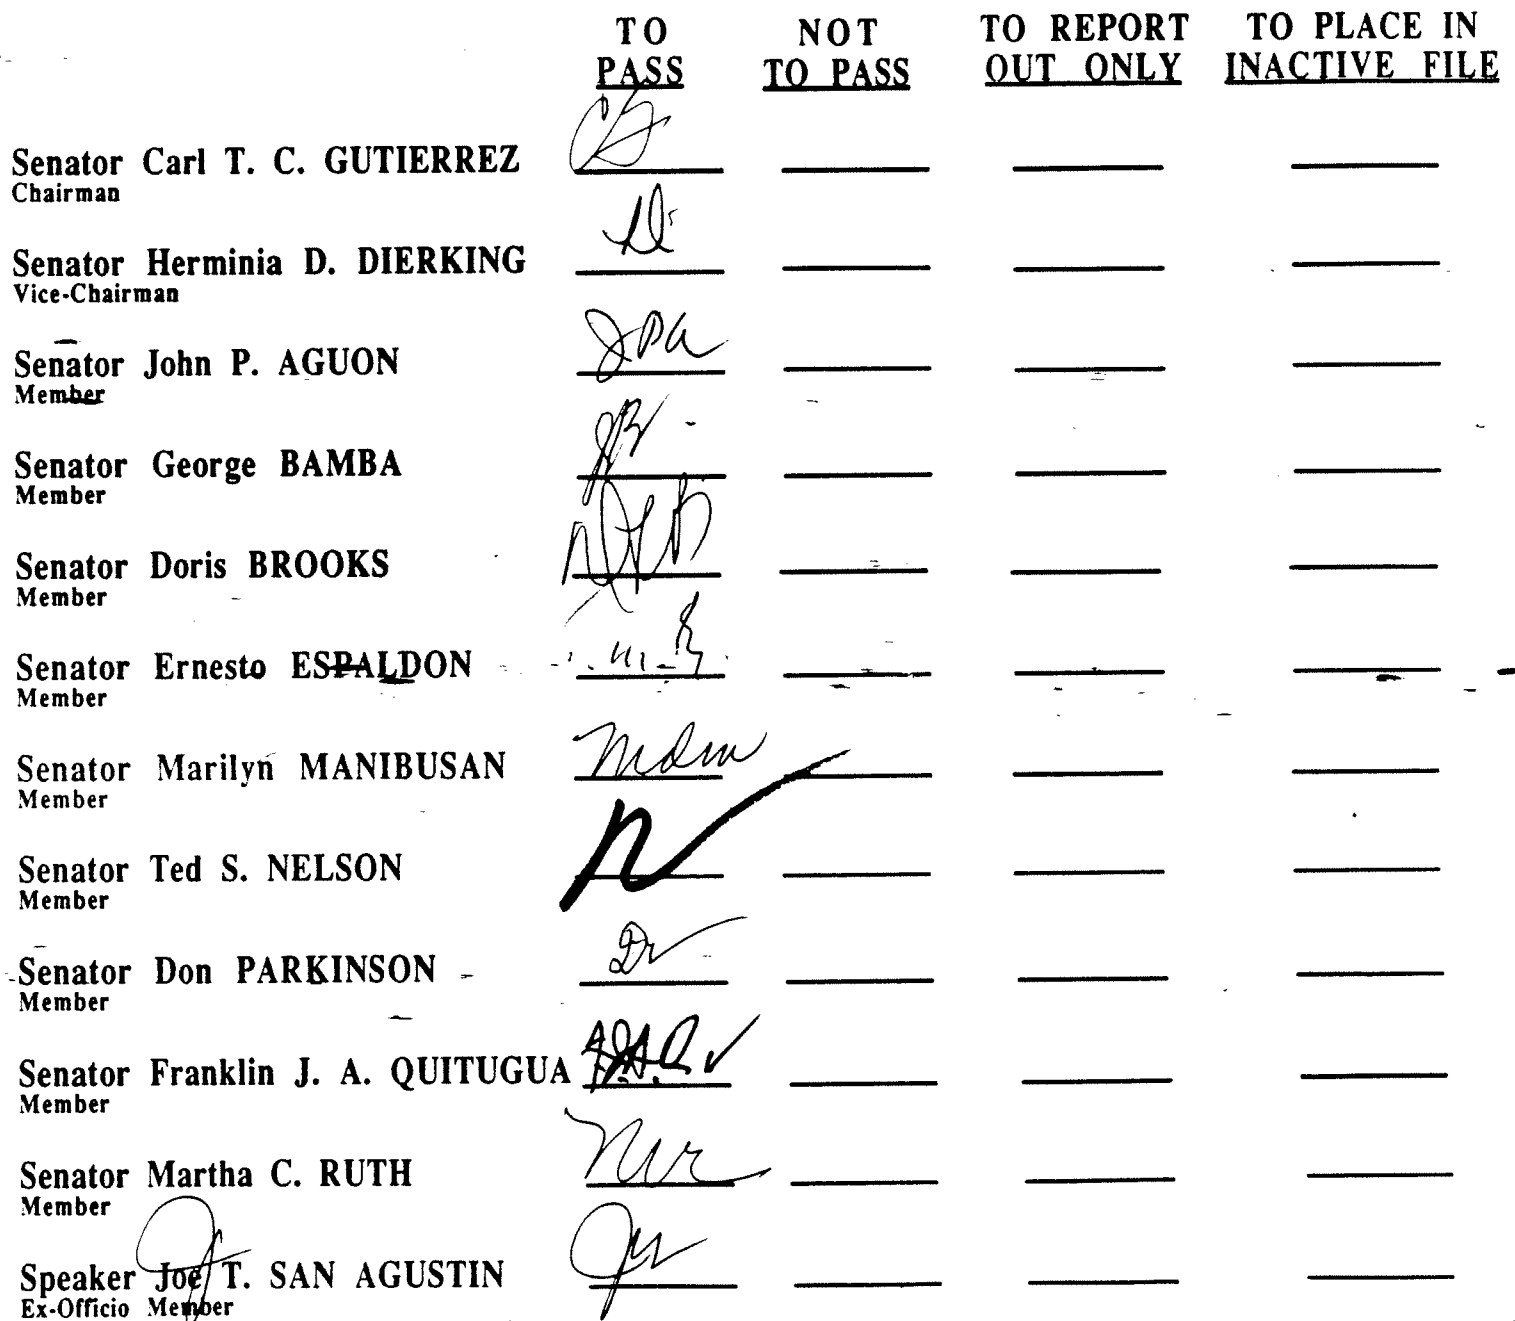 TO PASS NOT TO PASS TO REPORT OUT ONLY TO PLACE IN INACTIVE FILE
Senator Carl T. C. GUTIERREZ
Chairman
Senator Herminia D. DIERKING
Vice-Chairman
Senator John P. AGUON JPA
Member
Senator George BAMBA GB
Member
Senator Doris BROOKS
Member
Senator Ernesto ESPALDON
Member
Senator Marilyn MANIBUSAN MDM
Member
Senator Ted S. NELSON N
Member
Senator Don PARKINSON
Member
Senator Franklin J. A. QUITUGUA F.J.A.Q
Member
Senator Martha C. RUTH MCR
Member
Speaker Joe T. SAN AGUSTIN
Ex-Officio Member